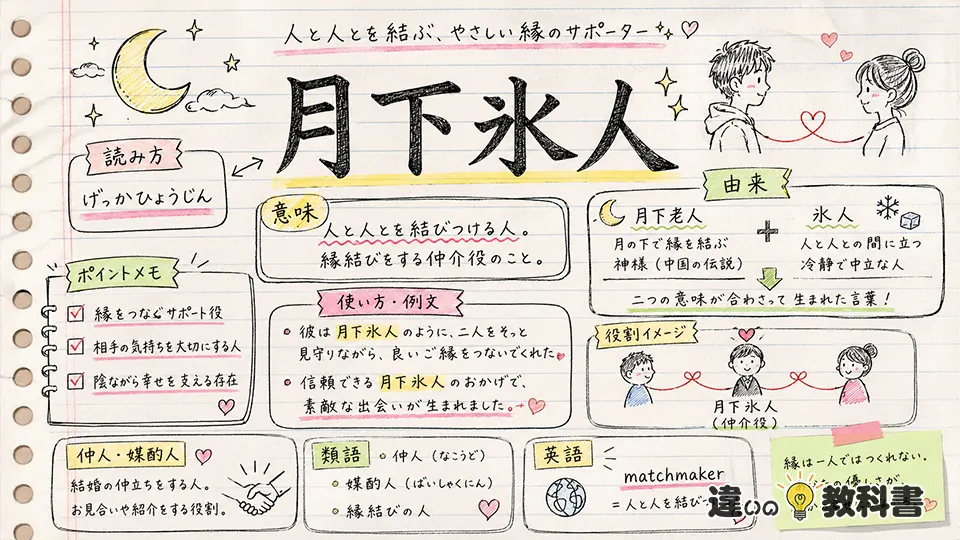 人と人とを結ぶ、やさしい縁のサポーター
月下氷人
読み方
げっかひょうじん
意味
人と人とを結びつける人。
縁結びをする仲介役のこと。
由来
月下老人
月の下で縁を結ぶ
神様（中国の伝説）
+
氷人
人と人との間に立つ
冷静で中立な人
二つの意味が合わさって生まれた言葉！
ポイントメモ
縁をつなぐサポート役
相手の気持ちを大切にする人
陰ながら幸せを支える存在
使い方・例文
彼は月下氷人のように、二人をそっと
見守りながら、良いご縁をつないでくれた
信頼できる月下氷人のおかげで、
素敵な出会いが生まれました。
役割イメージ
月下氷人
（仲介役）
仲人・媒酌人
結婚の仲立ちをする人。
お見合いや紹介をする役割。
類語
仲人（なこうど）
媒酌人（ばいしゃくにん）
縁結びの人
英語
matchmaker
=人と人を結び
縁は一人ではつくれない。
の優しさが、
違いの教科書